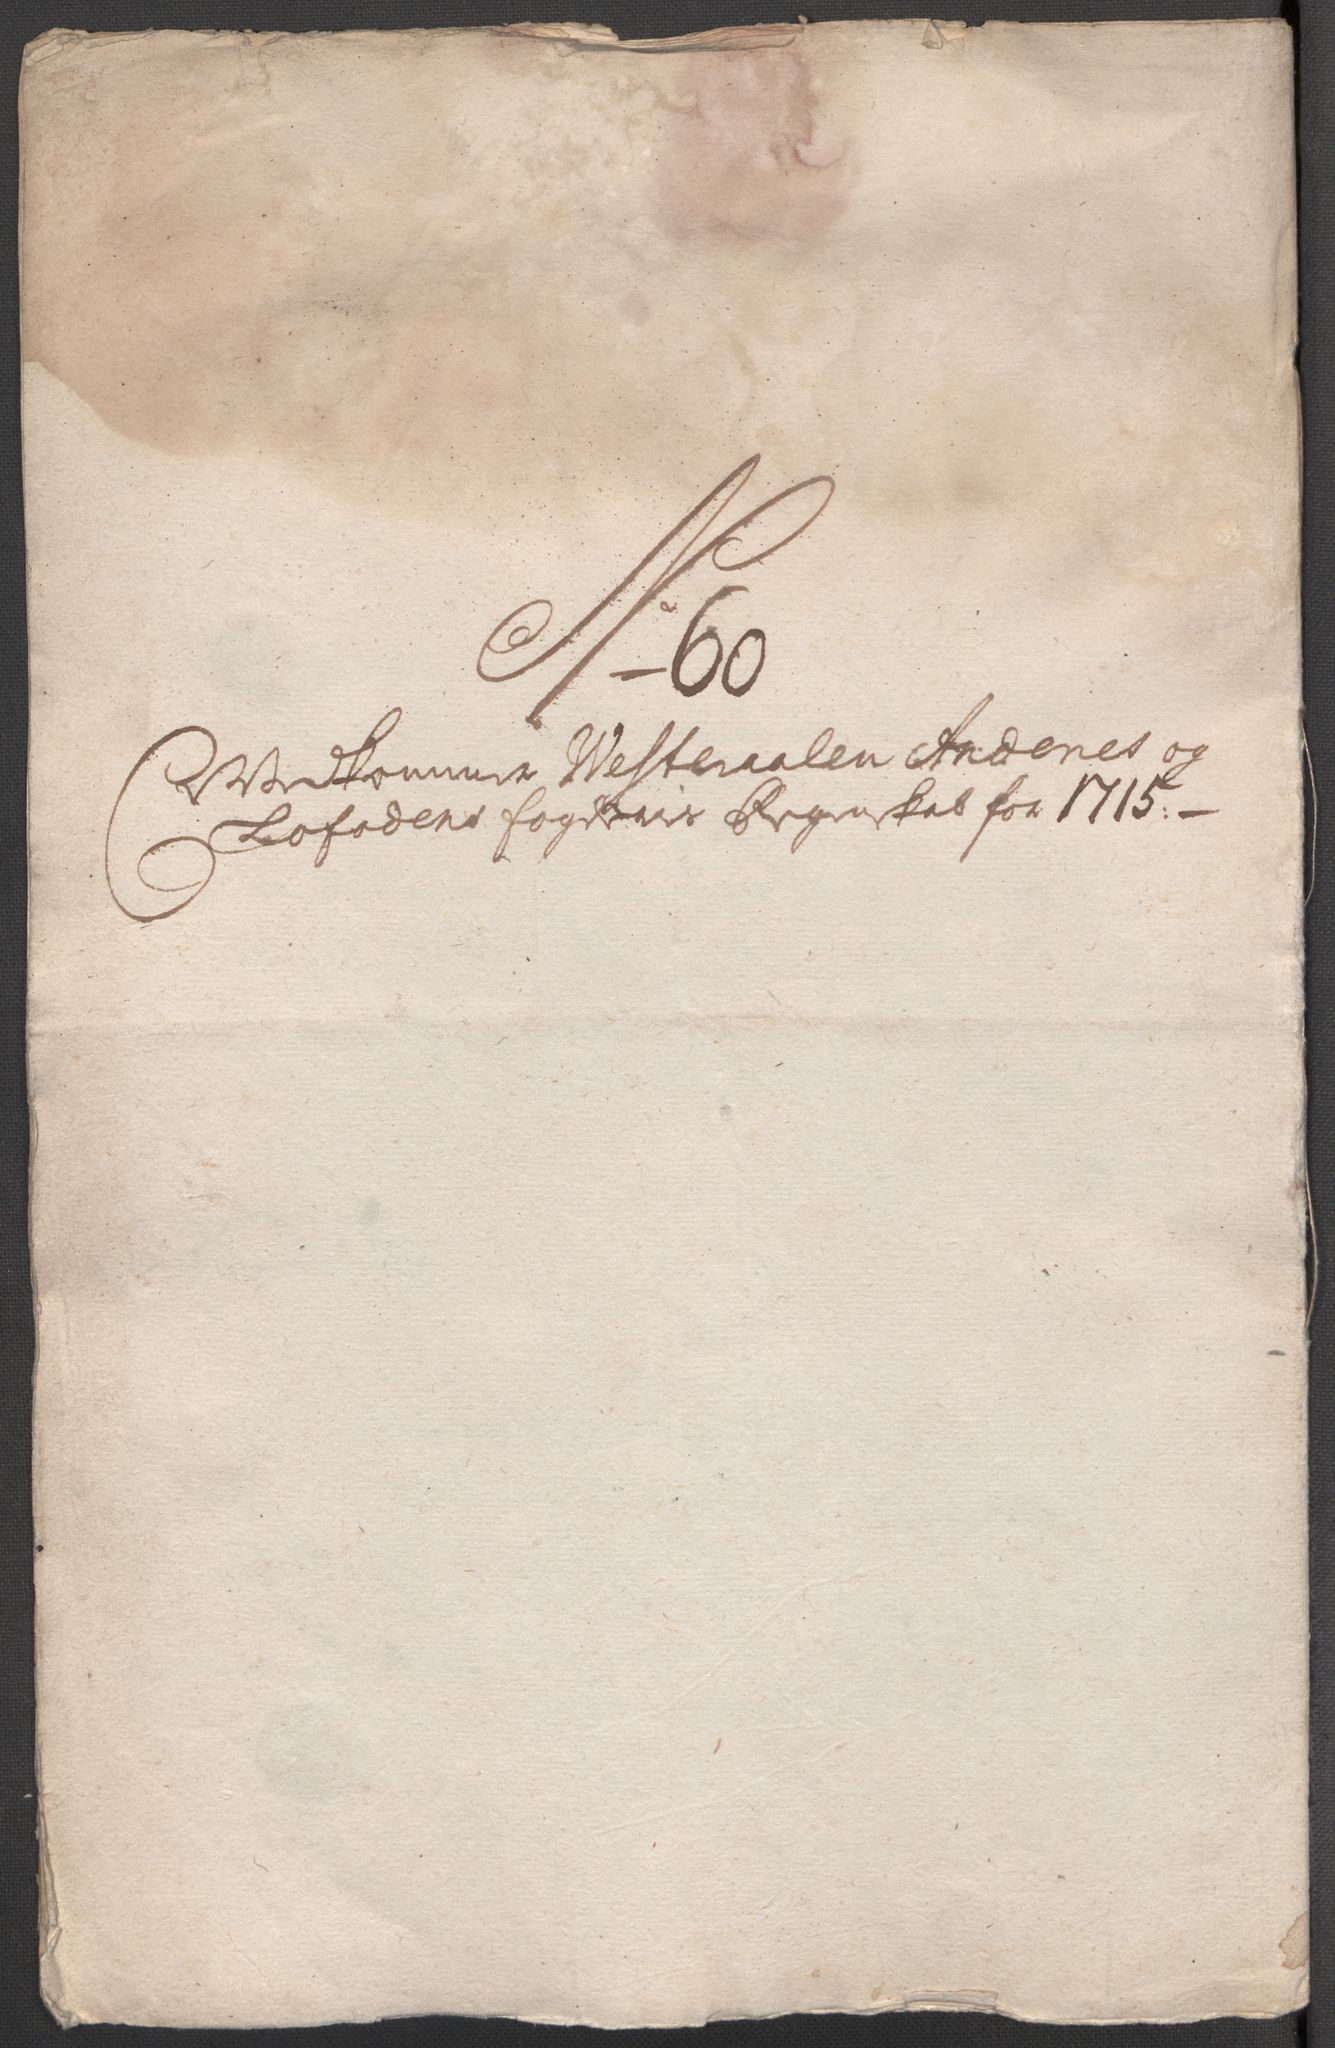 No 60
Vedkommer Westeraalen Andenes og
Lofodens fogderies Regenskab for 1715.